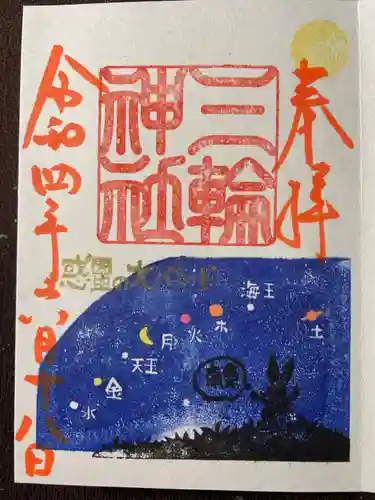 奉拝
三輪神社
令和四年六月十八日
惑星の大パレード
海王
土
木
火
月
天王
金
水